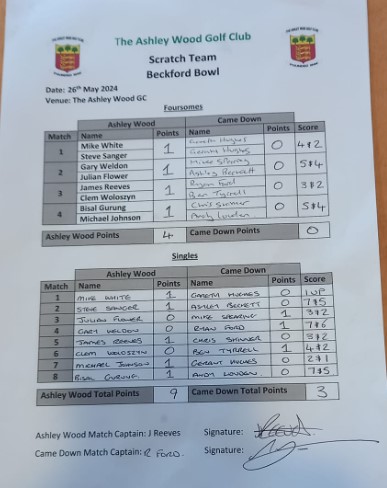 The Ashley Wood Golf Club
Scratch Team
Beckford Bowl
Date: 26th May 2024
Venue: The Ashley Wood GC
Foursomes
Ashley Wood Came Down
Match Name Points Name Points Score
1 Mike White 1 Gareth Hughes 0 4&2
Steve Sanger Geraint Hughes
2 Gary Weldon 1 Mike Spearing 0 5&4
Julian Flower Ashley Beckett
3 James Reeves 1 Ryan Ford 0 3&2
Clem Woloszyn Ben Tyrrell
4 Bisal Gurung 1 Chris Skinner 0 5&4
Michael Johnson Andy
Ashley Wood Points 4 Came Down Points 0
Singles
Ashley Wood Came Down
Match Name Points Name Points Score
1 MIKE WHITE 1 GARETH HUGHES 0 1UP
2 STEVE SANGER 1 ASHLEY BECKETT 0 7&5
3 JULIAN FLOWER 0 MIKE SPEARING 1 3&2
4 GARY WELDON 0 RYAN FORD 1 7&6
5 JAMES REEVES 1 CHRIS SKINNER 0 3&2
6 CLEM WOLOSZYN 0 BEN TYRRELL 1 4&2
7 MICHAEL JOHNSON 1 GERAINT HUGHES 0 2&1
8 BISAL GURUNG 1 ANDY 0 7&5
Ashley Wood Total Points 9 Came Down Total Points 3
Ashley Wood Match Captain: J Reeves Signature:
Came Down Match Captain: R FORD. Signature: